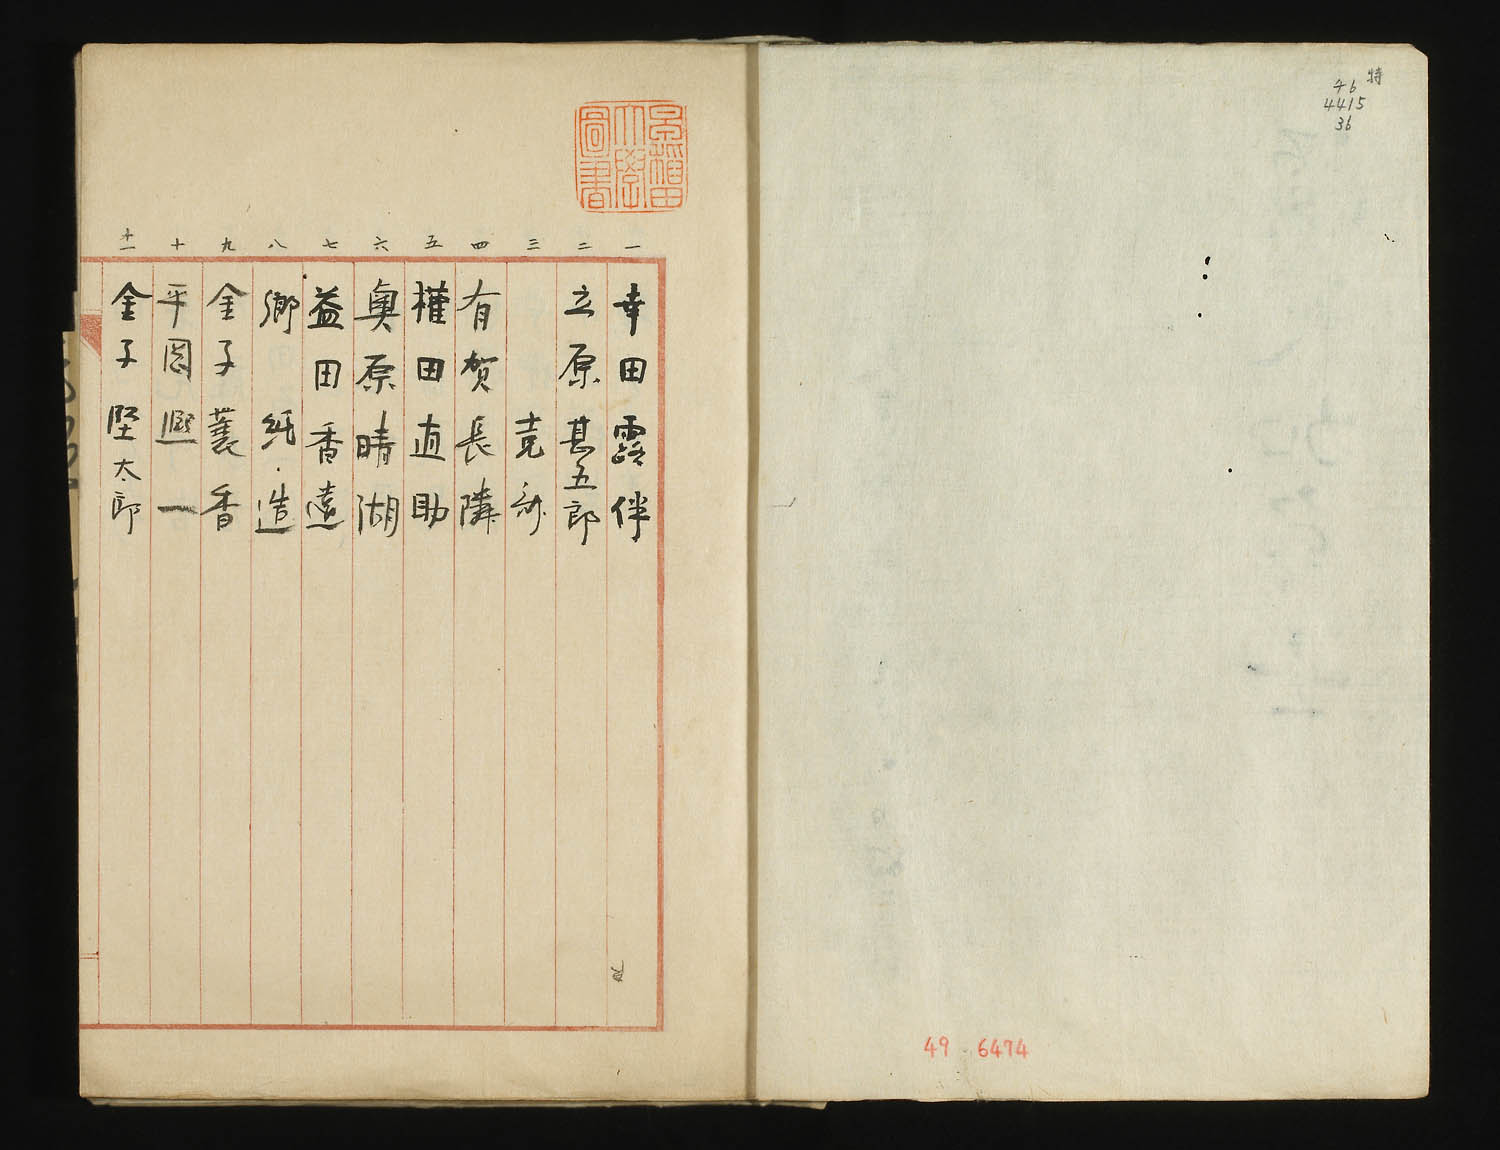 特
46
4415
36
49 6474
早稲田
大学
図書
一 幸田露伴
二 立原甚五郎
三
四 有賀長隣
五 權田直助
六 奥原晴湖
七 益田香遠
八 郷純造
九 金子蓑香
十 平岡凞一
十一 金子堅太郎